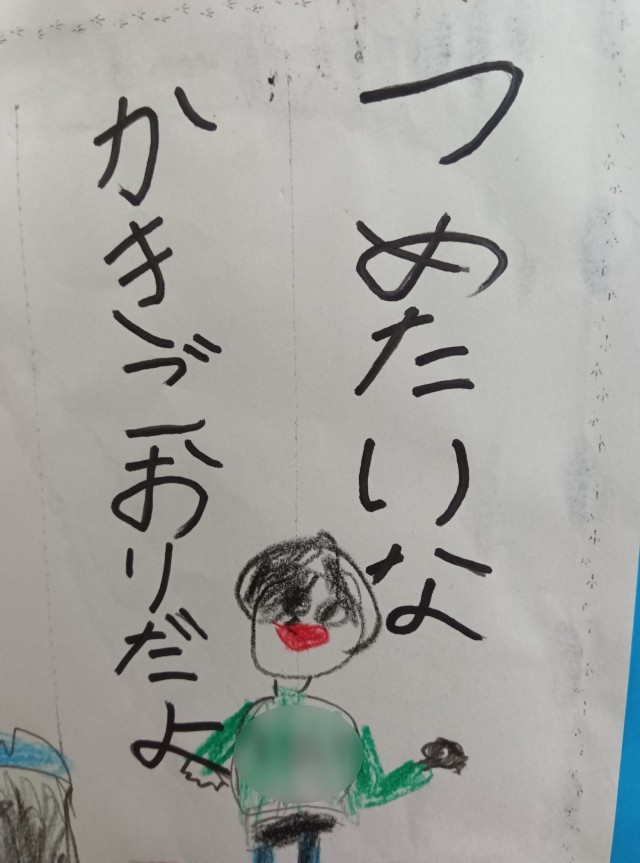 つめたいな
かきごおりだよ